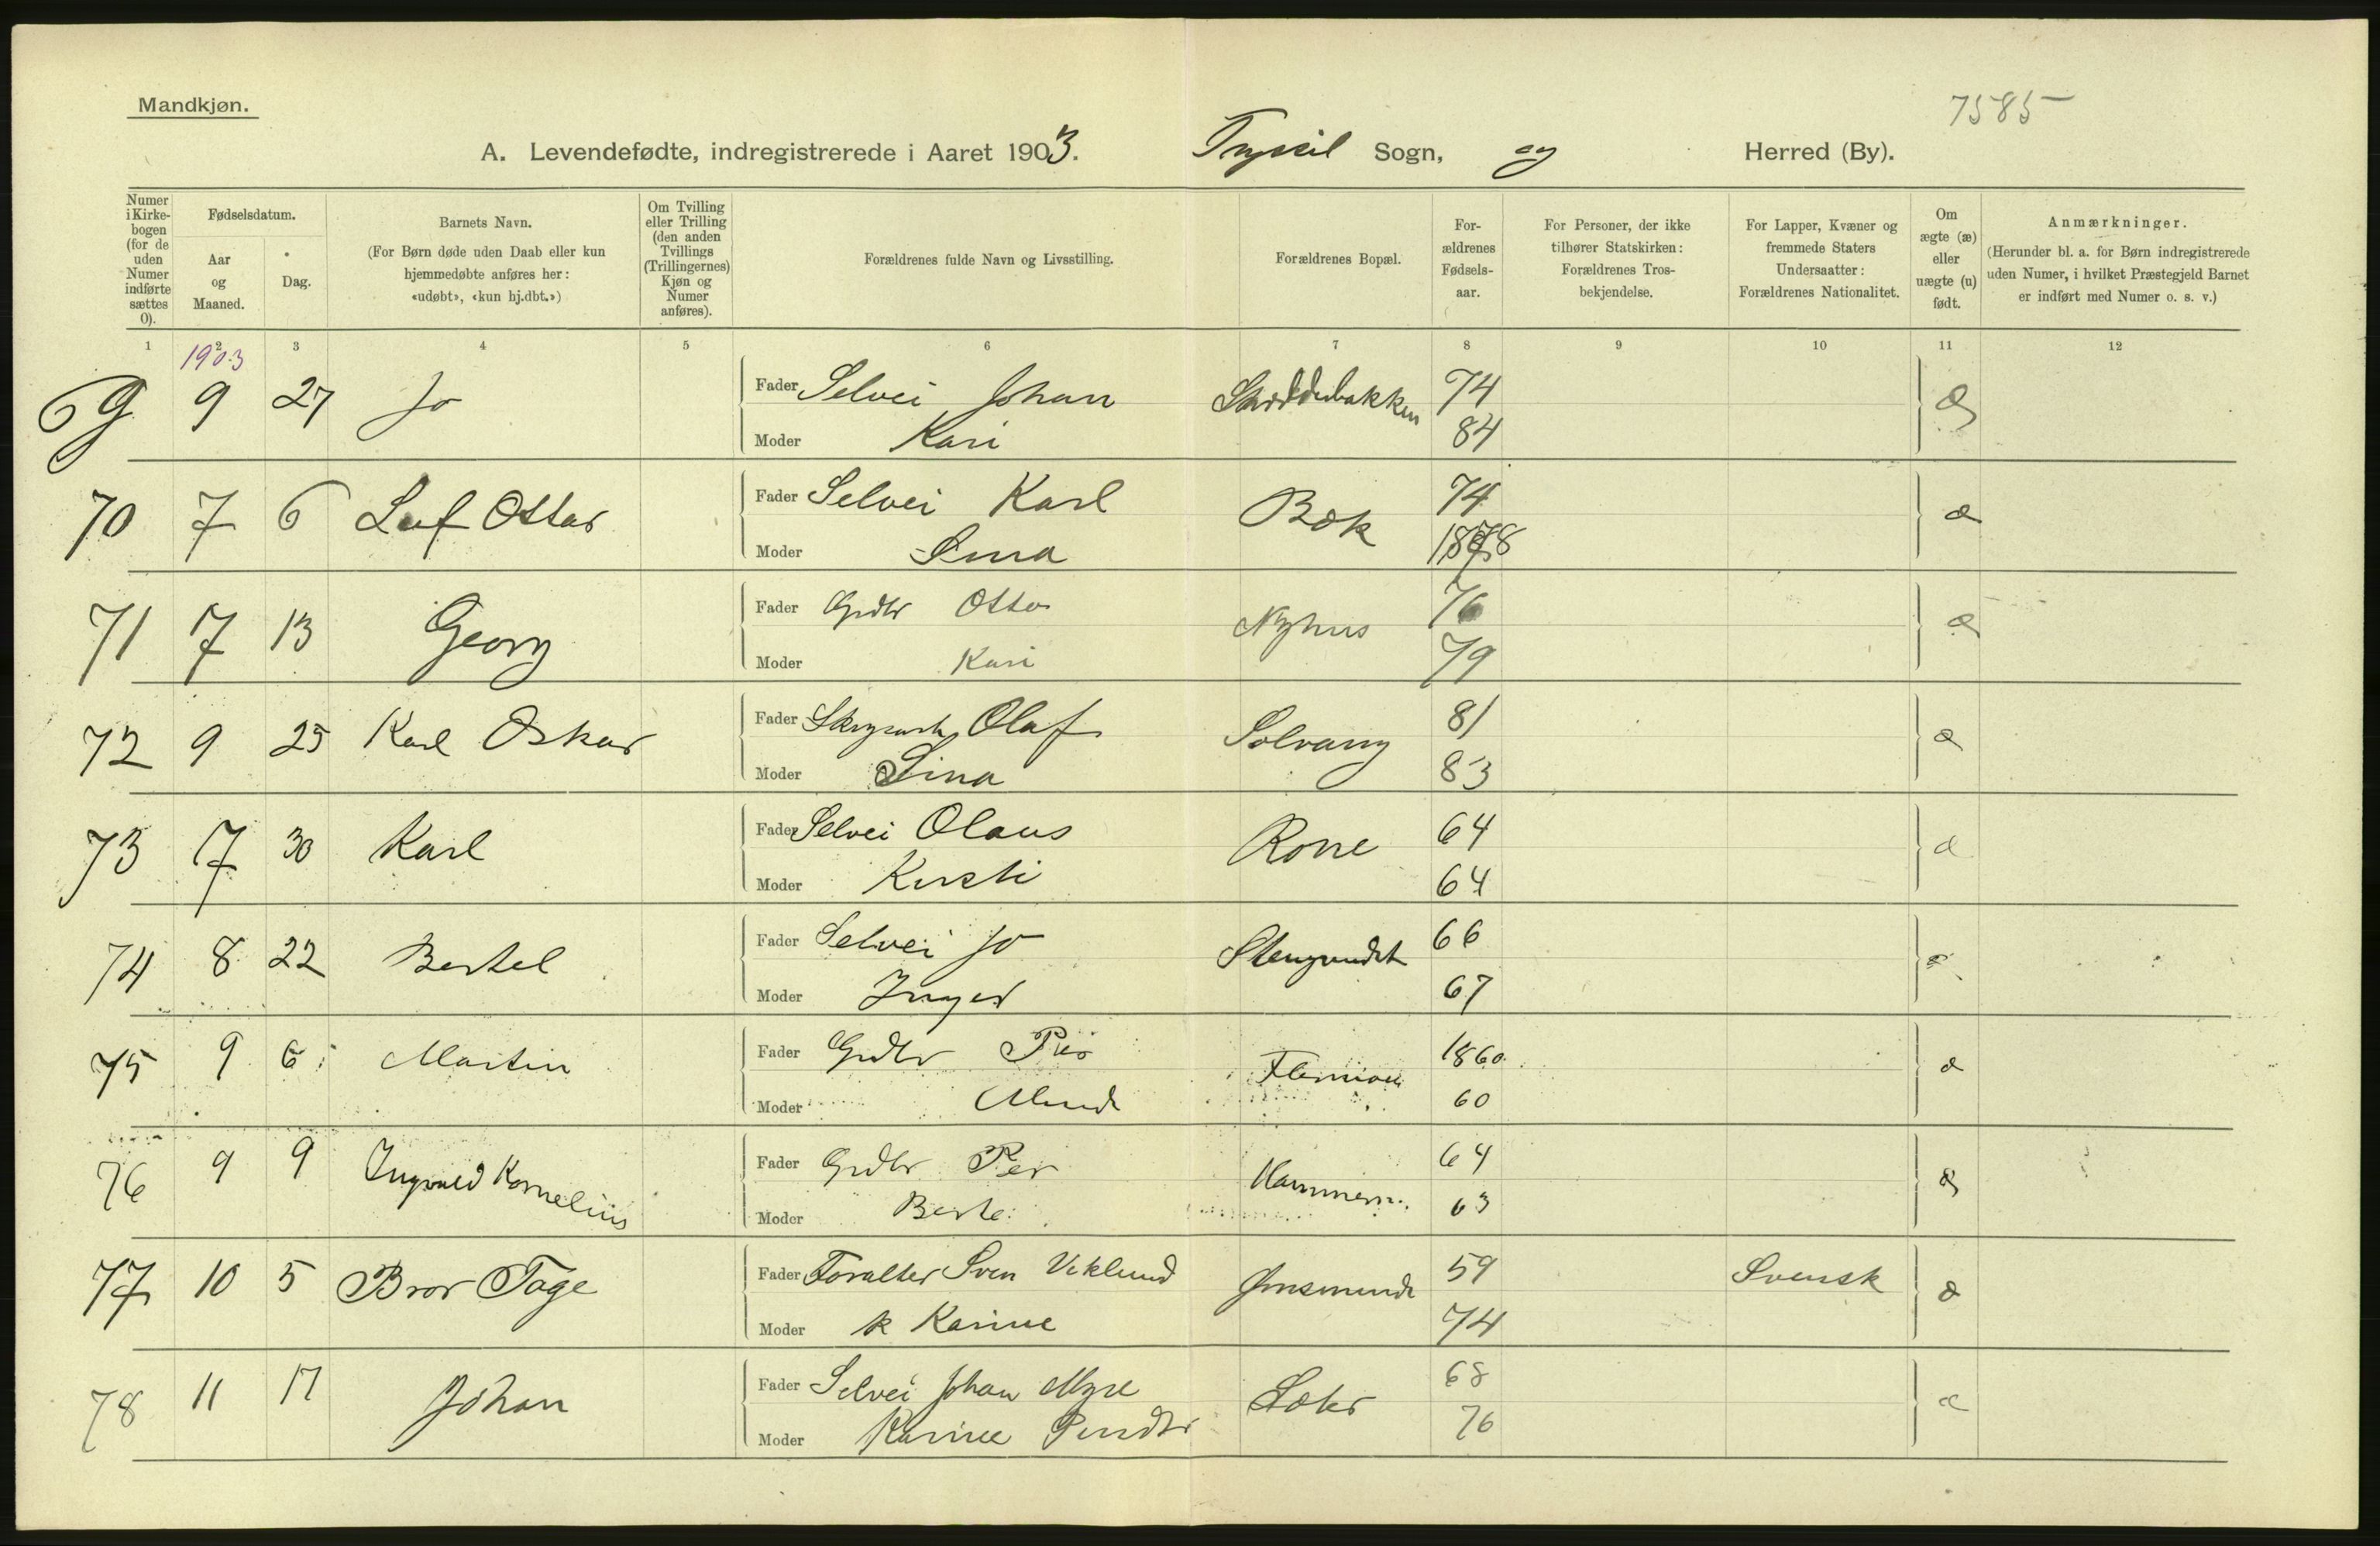 Mandkjøn.
7585
A. Levendefødte, indregistrerede i Aaret 1903. Trysil Sogn, og Herred (By).
Numer i Kirkebogen (for de uden Numer indførte sættes 0).
Fødselsdatum.
Aar og Maaned.
Dag.
Barnets Navn.
(For Børn døde uden Daab eller kun hjemmedøbte anføres her: «udøbt», «kun hj.dbt.»)
Om Tvilling eller Trilling (den anden Tvillings (Trillingernes) Kjøn og Numer anføres).
Forældrenes fulde Navn og Livsstilling.
Forældrenes Bopæl.
Forældrenes Fødselsaar.
For Personer, der ikke tilhører Statskirken: Forældrenes Trosbekjendelse.
For Lapper, Kvæner og fremmede Staters Undersaatter: Forældrenes Nationalitet.
Om ægte (æ) eller uægte (u) født.
Anmærkninger.
(Herunder bl. a. for Børn indregistrerede uden Numer, i hvilket Præstegjeld Barnet er indført med Numer o. s. v.)
1 2 3 4 5 6 7 8 9 10 11 12
1903
69 9 27 Jo Fader Selvei Johan 74 æ
Moder Kari 84
70 7 6 Leif Ottar Fader Selvei Karl Bæk 74 æ
Moder Lina 1878
71 7 13 Georg Fader Grdbr Otto Nyhus 76 æ
Moder Kari 79
72 9 25 Karl Oskar Fader Olaf Solvang 81 æ
Moder Lina 83
73 7 30 Karl Fader Selvei Olaus Rone 64 æ
Moder Kersti 64
74 8 22 Bertel Fader Selvei Jo 66 æ
Moder Inger 67
75 9 6 Martin Fader Grdbr Per 1860 æ
Moder 60
76 9 9 Ingvald Kornelius Fader Grdbr Per Hammern. 64 æ
Moder Berte 63
77 10 5 Bror Tage Fader Forvalter Sven Viklund 59 Svensk æ
Moder k Karine 74
78 11 17 Johan Fader Selvei Johan Myre 68 æ
Moder Karine 76